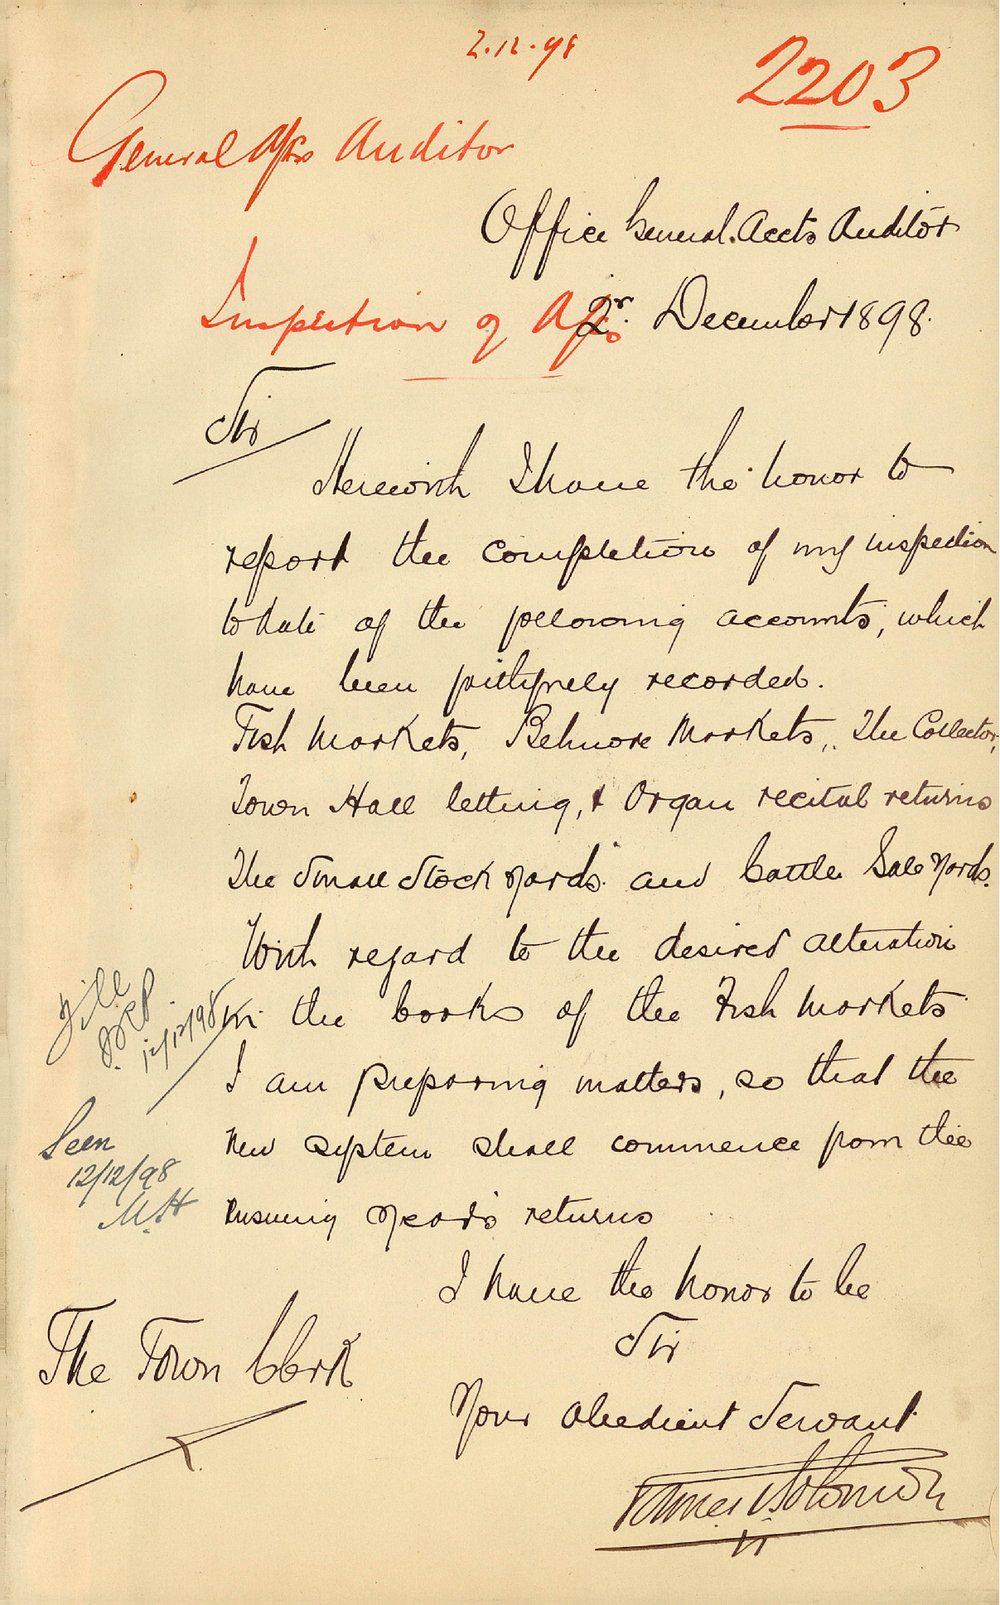 2.12.98
2203
General A/cs Auditor
Office General Accts Auditor
Inspection of A/cs
2r. December 1898.
Sir
Herewith I have the honor to
report the completion of my inspection
to date of the following accounts, which
have been faithfully recorded.
Fish Markets, Belmore Markets, The Collector,
Town Hall letting, & Organ recital returns
The Small Stock Yards and Cattle Sale Yards.
With regard to the desired alteration
in the books of the Fish Markets
I am preparing matters, so that the
new system shall commence from the
ensuing year's returns
File
12/12/98
Seen
12/12/98
M.H
I have the honor to be
Sir
Your obedient Servant
The Town Clerk
James Solomon